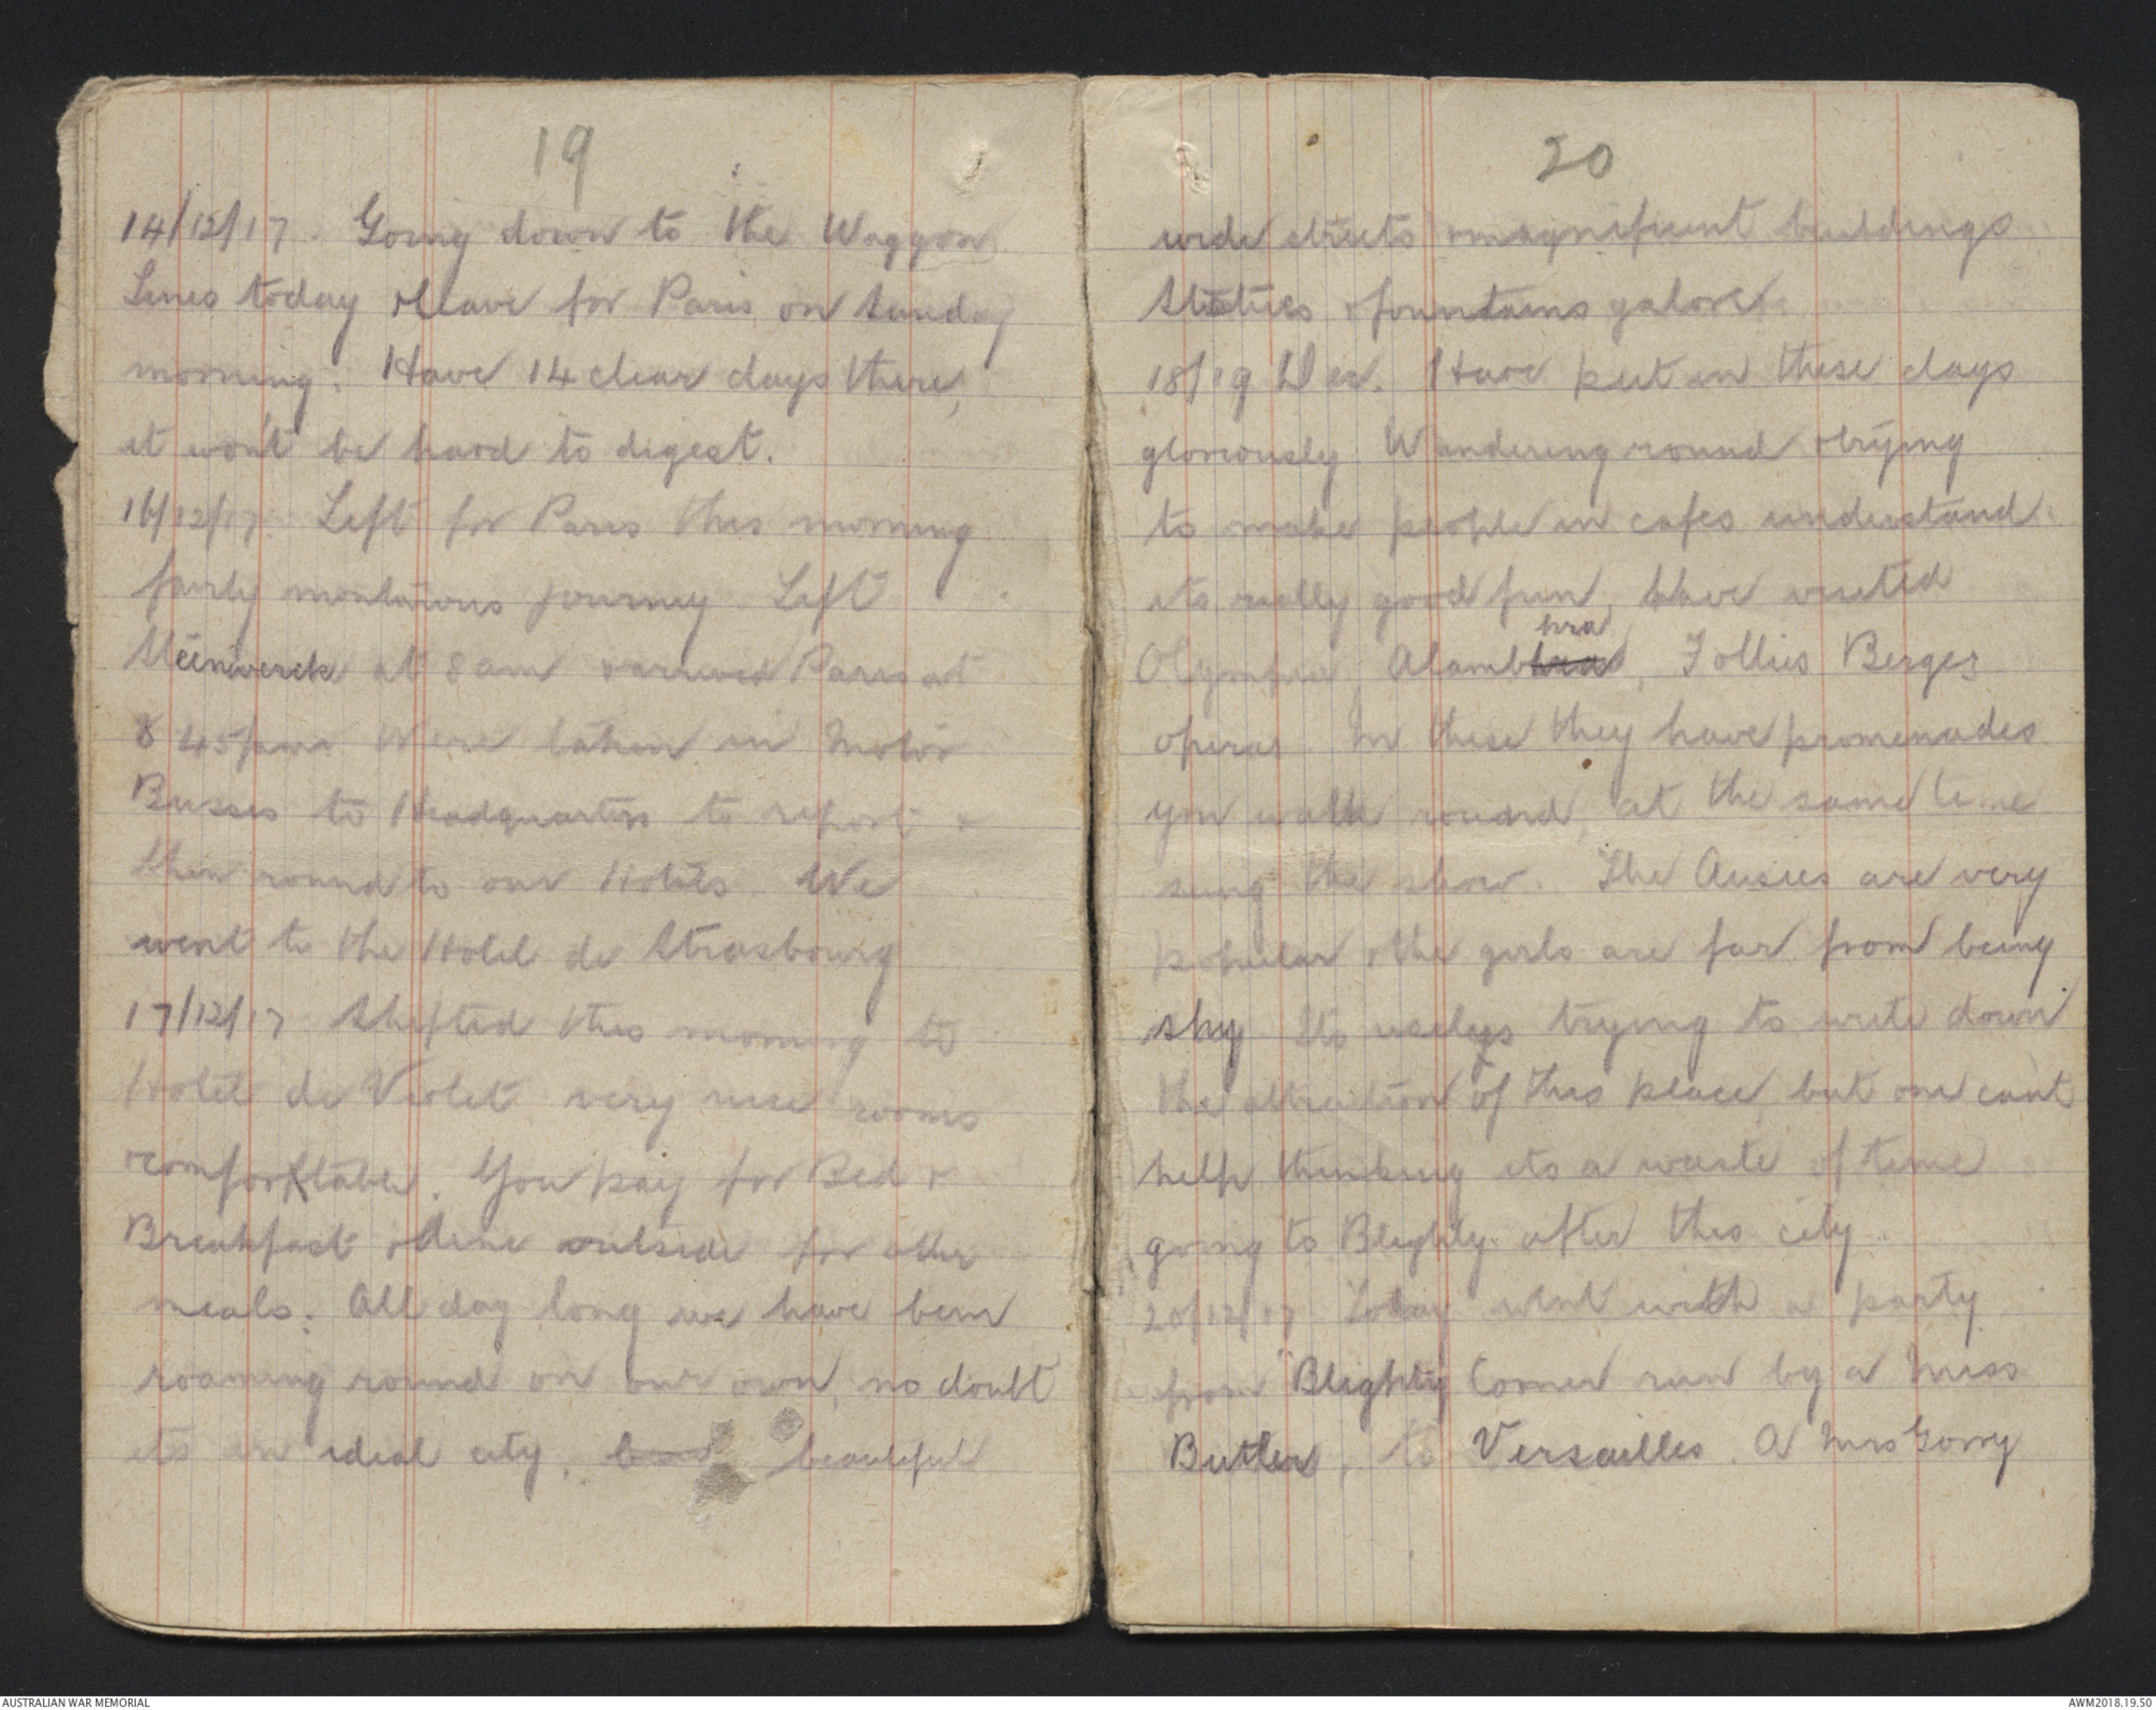 19
14/12/17. Going down to the Waggon
Lines today & leave for Paris on Sunday
morning. Have 14 clear days there,
it won't be hard to digest.
16/12/17. Left for Paris this morning
fairly monotonous journey. Left
at 8 am & arrived Paris at
8 45 pm. Were taken in Motor
Busses to Headquarters to report &
then round to our Hotels. We
went to the Hotel de Strasbourg
17/12/17 Shifted this morning to
Hotel de Violet very nice rooms
& comfortable. You pay for Bed &
Breakfast & dine outside for other
meals. All day long we have been
roaming round on our own, no doubt
its an ideal city, beautiful
20
wide streets magnificent buildings
Statues & fountains galore.
18/19 Dec. Have put in these days
gloriously Wandering round & trying
to make people in cafes understand.
its really good fun, have visited
Olympia, Alambhra, Follies Berges
operas In these they have promenades
you walk round, at the same time
seeing the show. The Ausies are very
popular & the girls are far from being
shy Its useless trying to write down
the attraction of this place, but one cant
help thinking its a waste of time
going to Blighty after this city.
20/12/17 Today went with a party
from "Blighty Corner run by a Miss
Butler, to Versailles. A Mrs Gorry
AUSTRALIAN WAR MEMORIAL
AWM2018.19.50